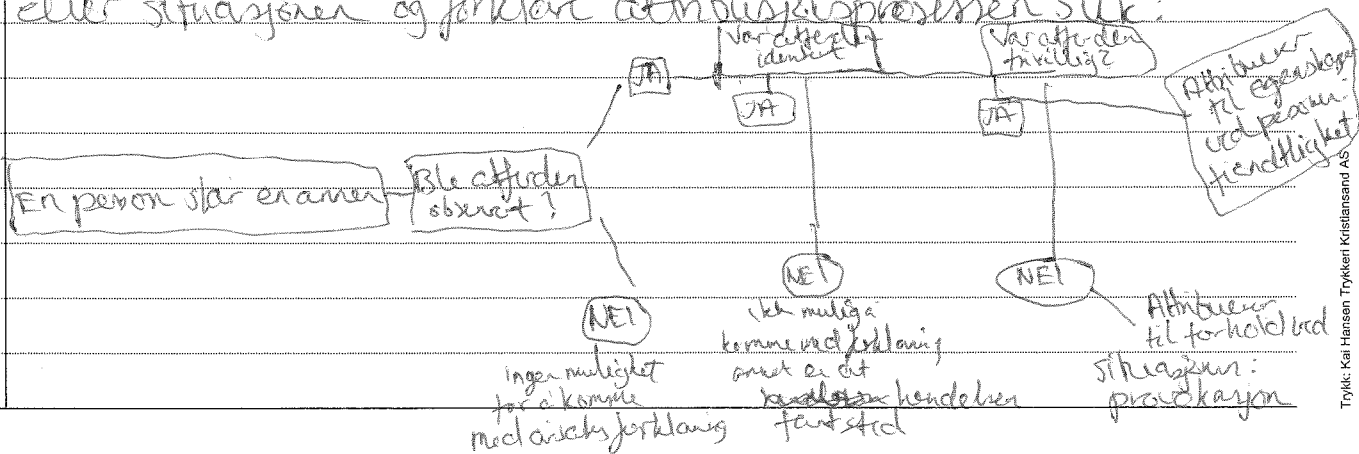 eller situasjonen og forklart attribusjonsprosessen slik:
En person slår en annen
Ble atferden
observert?
JA
Var atferden
JA
Var atferden
frivillig?
JA
Attribuerer
til egenskaper
ved personen:
fiendtlighet
NEI
ingen mulighet
for å komme
med årsaksforklaring
NEI
ikke mulig å
komme med forklaring
annet er at
hendelsen
fant sted
NEI
Attribuerer
til forhold ved
situasjonen:
provokasjon
Trykk: Kai Hansen Trykkeri Kristiansand AS